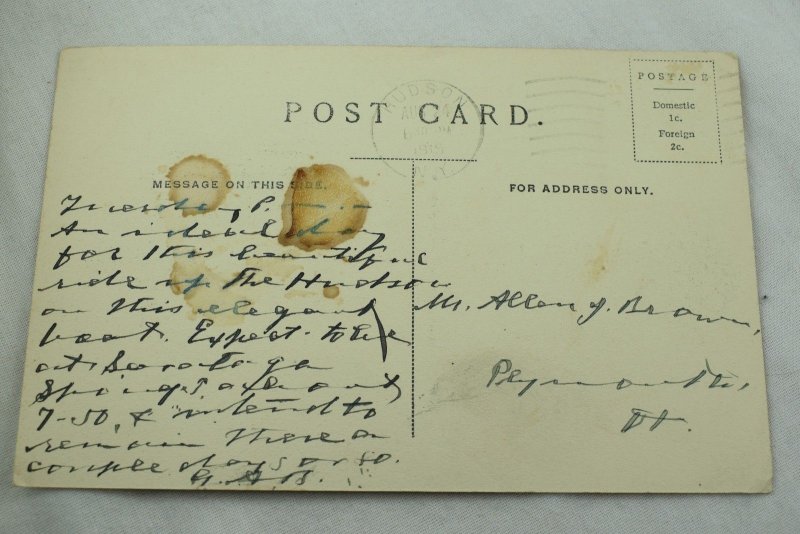 POST CARD.
HUDSON
N.Y.
POSTAGE
Domestic
1c.
Foreign
2c.
MESSAGE ON THIS SIDE.
FOR ADDRESS ONLY.
Tuesday P.m. –
An ideal day
for this beautiful
ride up the Hudson
on this elegant
boat. Expect to be
at Saratoga
Springs, about
7-50, & intend to
remain there a
couple days or so.
G.A.B.
Mr. Allen J. Brown,
Plymouth,
Vt.